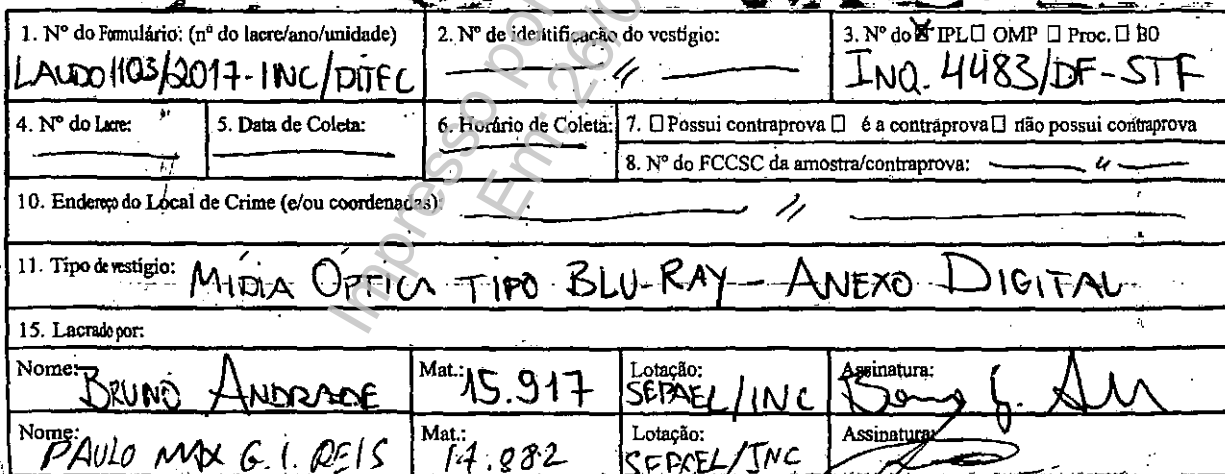 1. Nº do Formulário: (nº do lacre/ano/unidade) 2. Nº de identificação do vestígio: 3. Nº do ☒ IPL ☐ OMP ☐ Proc. ☐ BO
LAUDO 1103/2017-INC/DITEC INQ. 4483/DF-STF
4. Nº do Lacre: 5. Data de Coleta: 6. Horário de Coleta: 7. ☐ Possui contraprova ☐ é a contraprova ☐ não possui contraprova
8. Nº do FCCSC da amostra/contraprova:
10. Endereço do Local de Crime (e/ou coordenadas):
11. Tipo de vestígio: MÍDIA ÓPTICA TIPO BLU-RAY - ANEXO DIGITAL
15. Lacrado por:
Nome: BRUNO ANDRADE Mat.: 15.917 Lotação: SEPAEL/INC Assinatura:
Nome: PAULO MAX G. I. REIS Mat.: 17.882 Lotação: SEPAEL/INC Assinatura:
Impresso por
Em: 26/0